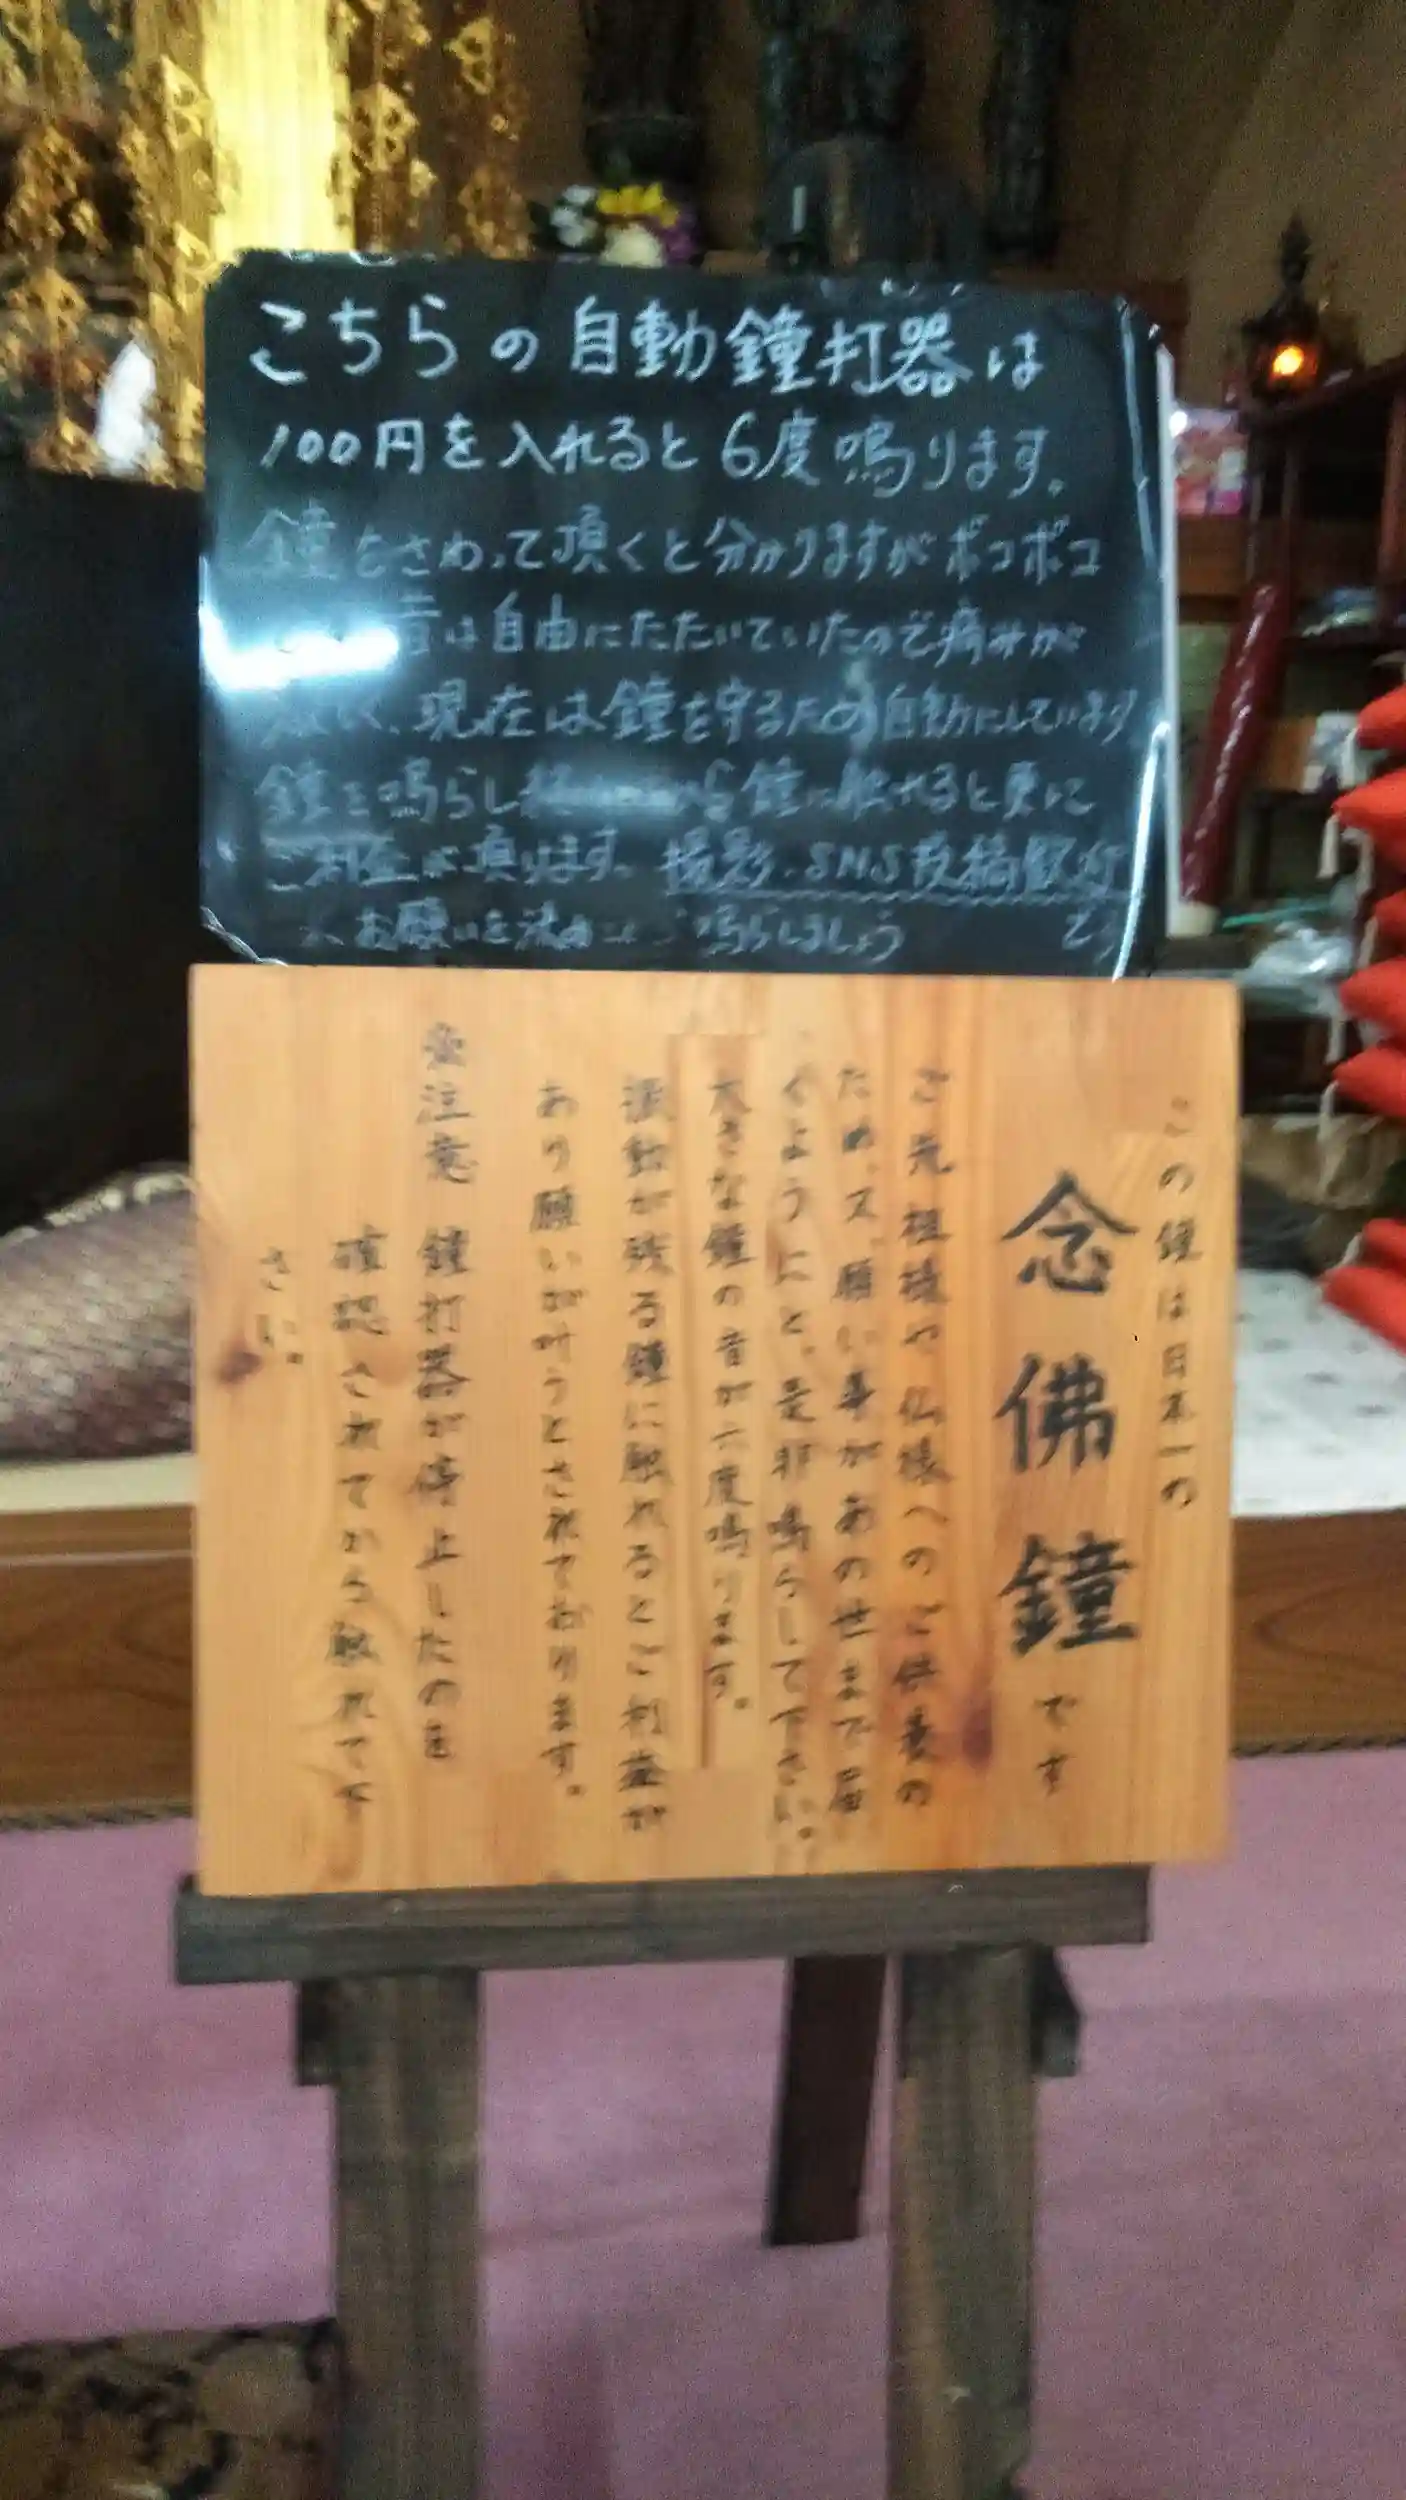 こちらの自動鐘打器は
100円を入れると6度鳴ります。
鐘をさわって頂くと分かりますがボコボコ
昔は自由にたたいていたので痛みが
現在は鐘を守るため自動にしています
鐘を鳴らし 鐘に触れると更に
ご利益が頂けます。撮影・SNS投稿歓迎
です
お願いを決めて 鳴らしましょう
この鐘は日本一の
念佛鐘です
ご先祖様や仏様へのご供養の
ため、又、願い事があの世まで届
くようにと、是非鳴らして下さい。
大きな鐘の音が六度鳴ります。
波動が残る鐘に触れるとご利益が
あり願いが叶うとされております。
注意 鐘打器が停止したのを
確認されてから触れて下
さい。